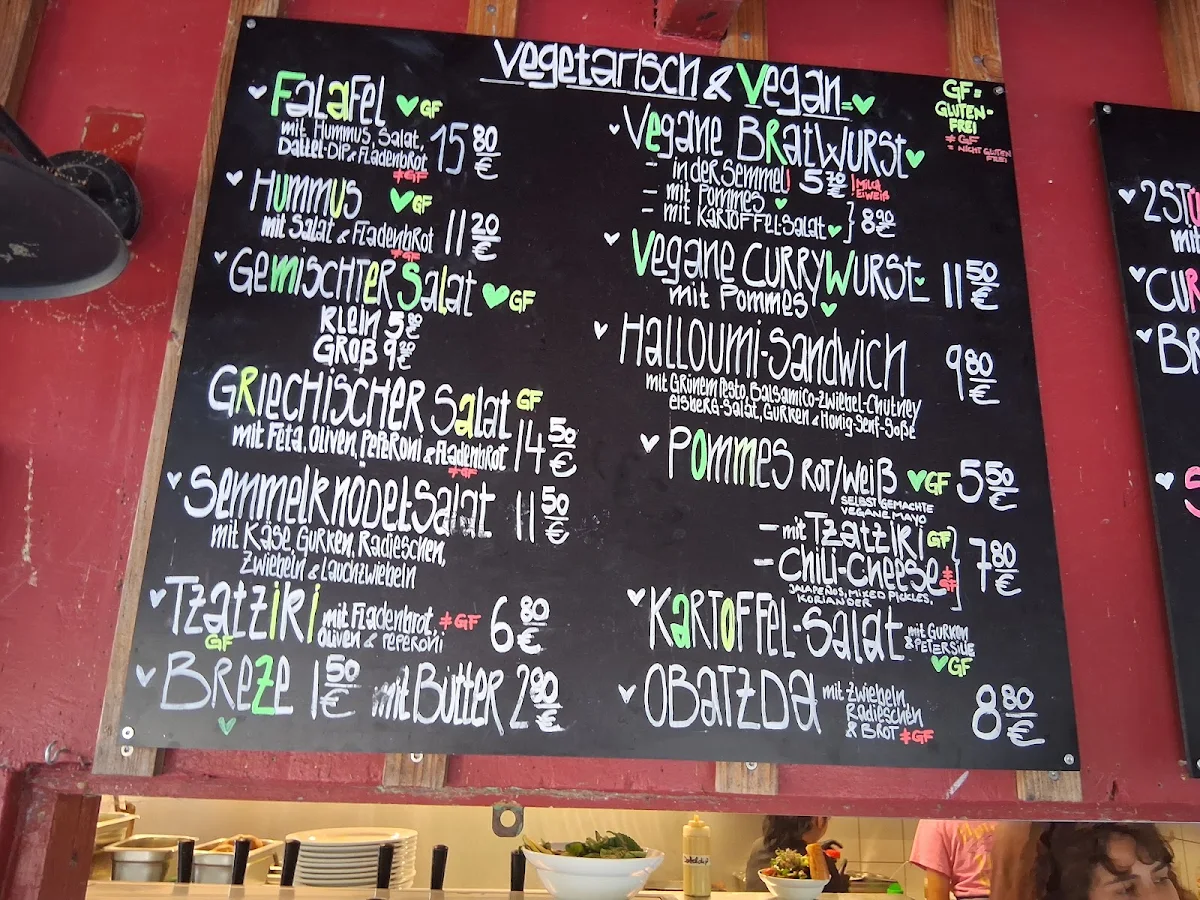 Vegetarisch & Vegan =
GF =
GLUTEN-
FREI
≠ GF
= NICHT GLUTEN
FREI
Falafel GF
mit Hummus, Salat,
Dattel-Dip & Fladenbrot 15 80 €
≠GF
Hummus GF
mit Salat & Fladenbrot 11 20 €
≠GF
Gemischter Salat GF
Klein 5 80 €
Groß 9 20 €
Griechischer Salat GF
mit Feta, Oliven, Peperoni & Fladenbrot 14 50 €
≠GF
Semmelknödelsalat 11 50 €
mit Käse, Gurken, Radieschen,
Zwiebeln & Lauchzwiebeln
Tzatziki mit Fladenbrot, ≠GF 6 80 €
GF Oliven & Peperoni
Breze 1 50 € mit Butter 2 80 €
Vegane Bratwurst
- in der Semmel! 5 70 € ! MILCH
EIWEIß
- mit Pommes
- mit Kartoffel-Salat } 8 90 €
Vegane Currywurst 11 50 €
mit Pommes
Halloumi-Sandwich 9 80 €
mit Grünem Pesto, Balsamico-Zwiebel-Chutney
Eisberg-Salat, Gurken & Honig-Senf-Soße
Pommes Rot/Weiß GF 5 50 €
SELBST GEMACHTE
VEGANE MAYO
- mit Tzatziki GF
- Chili-Cheese ≠GF 7 80 €
JALAPEÑOS, MIXED PICKLES,
KORIANDER
Kartoffel-Salat mit Gurken
& Petersilie
GF
Obatzda mit Zwiebeln, 8 80 €
Radieschen
& Brot ≠GF
2 St
mit
Cur
Br
S